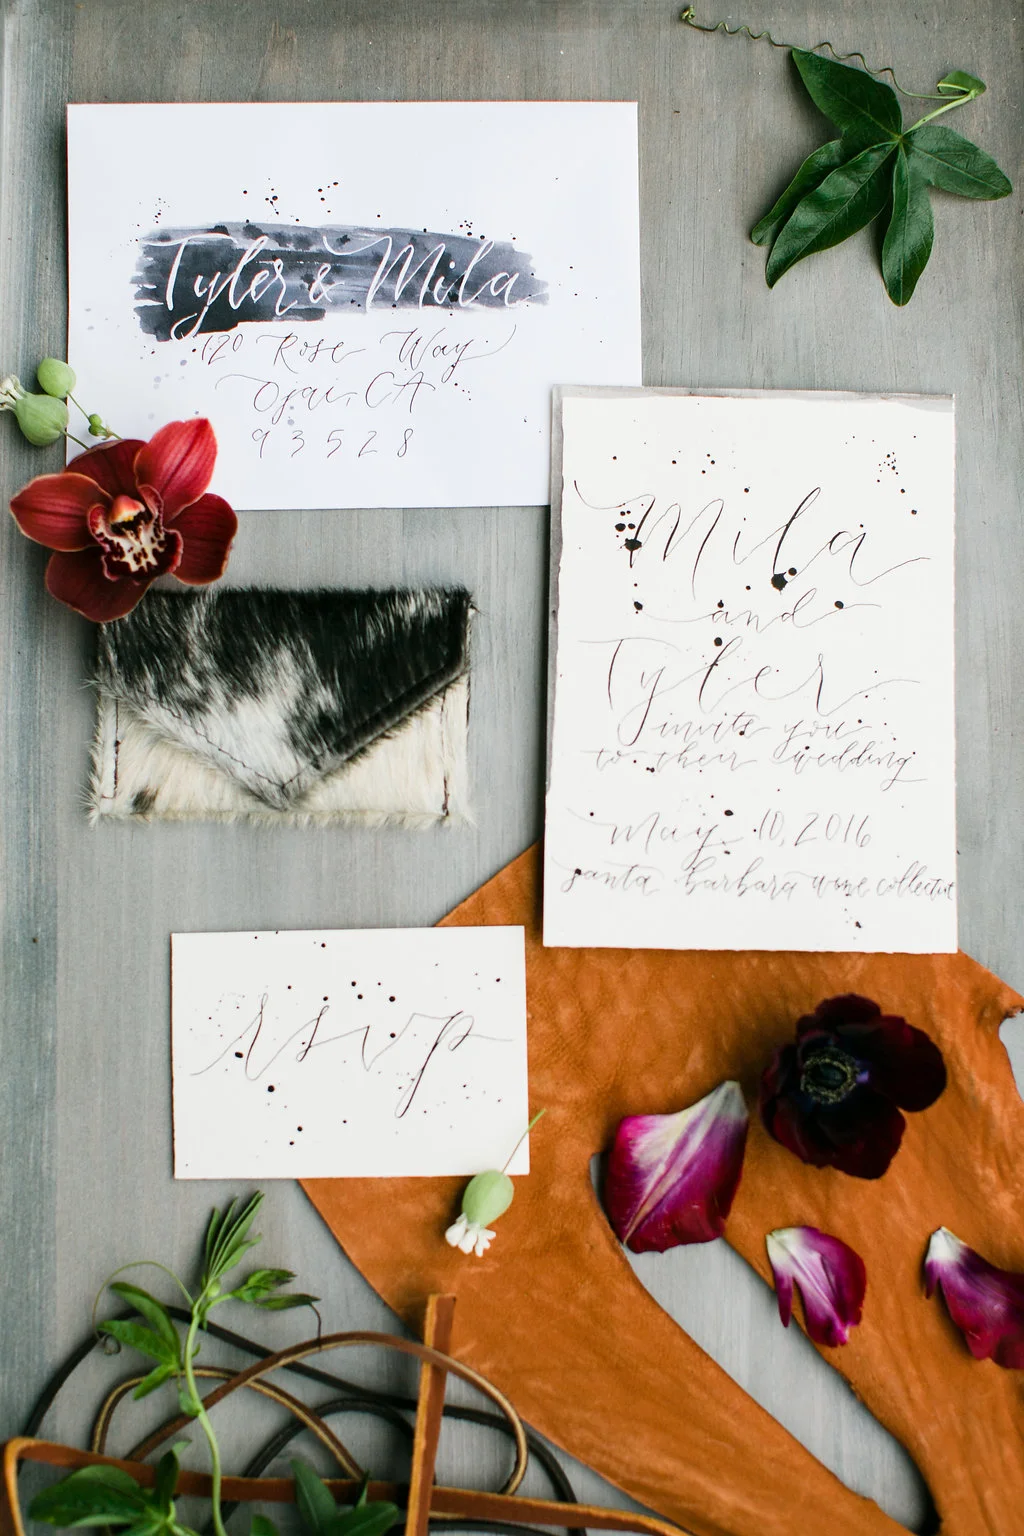 Tyler & Mila
120 Rose Way
Ojai, CA
93528
Mila
and
Tyler
invite you
to their wedding
May 10, 2016
santa barbara wine collective
rsvp